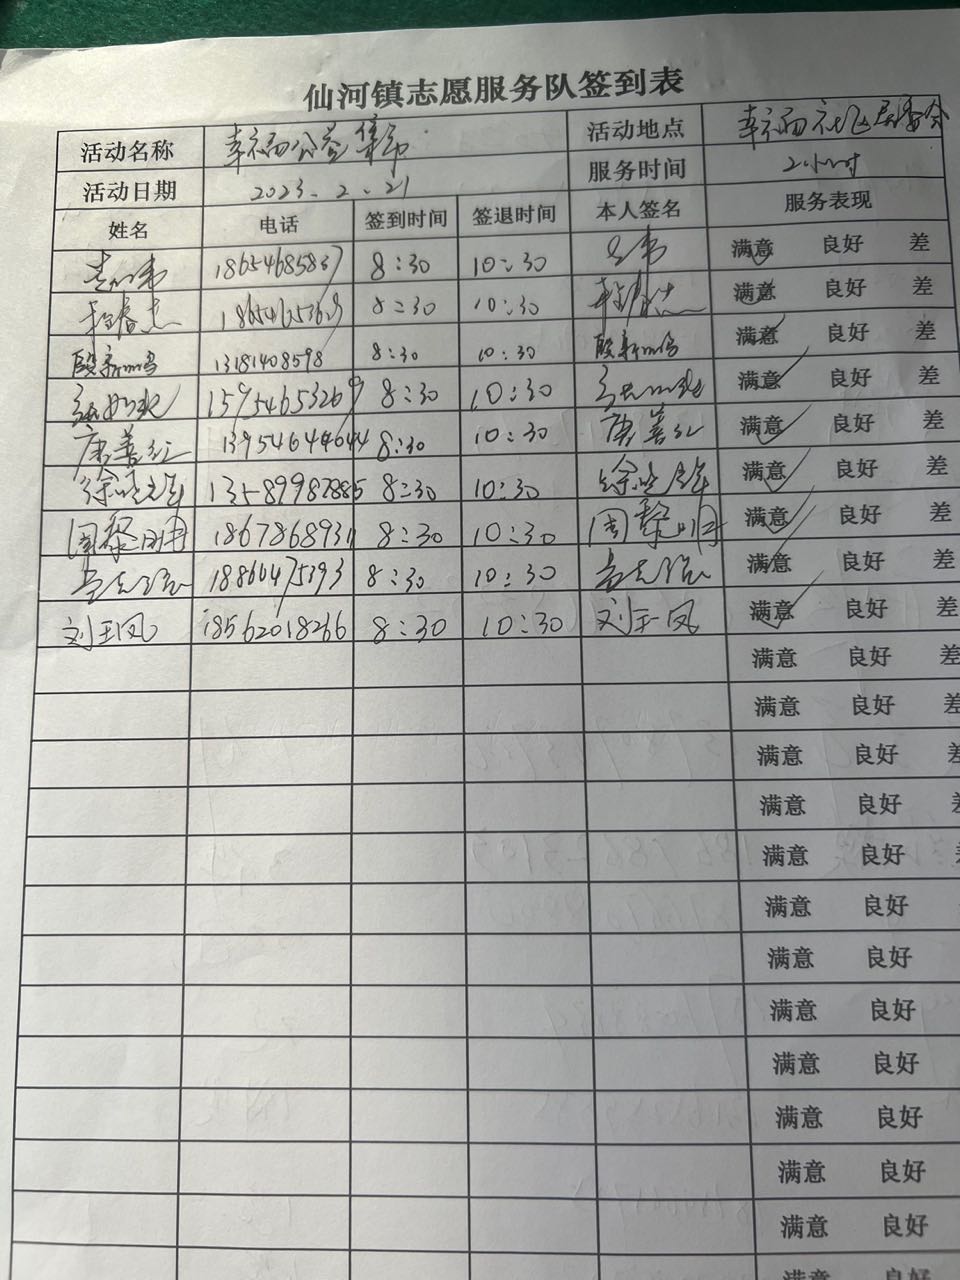 仙河镇志愿服务队签到表
活动名称 幸福公益集市 活动地点 幸福社区居委会
活动日期 2023.2.21 服务时间 2小时
姓名 电话 签到时间 签退时间 本人签名 服务表现
18654685837 8:30 10:30 满意 良好 差
8:30 10:30 满意 良好 差
殷新鸣 13181408598 8:30 10:30 殷新鸣 满意 良好 差
15954653269 8:30 10:30 满意 良好 差
唐善江 13954644644 8:30 10:30 唐善江 满意 良好 差
13589987885 8:30 10:30 满意 良好 差
周黎明 18678689311 8:30 10:30 周黎明 满意 良好 差
18860475393 8:30 10:30 满意 良好 差
刘玉凤 18562018266 8:30 10:30 刘玉凤 满意 良好 差
满意 良好 差
满意 良好 差
满意 良好 差
满意 良好 差
满意 良好
满意 良好
满意 良好
满意 良好
满意 良好
满意 良好
满意 良好
满意 良好
满意 良好